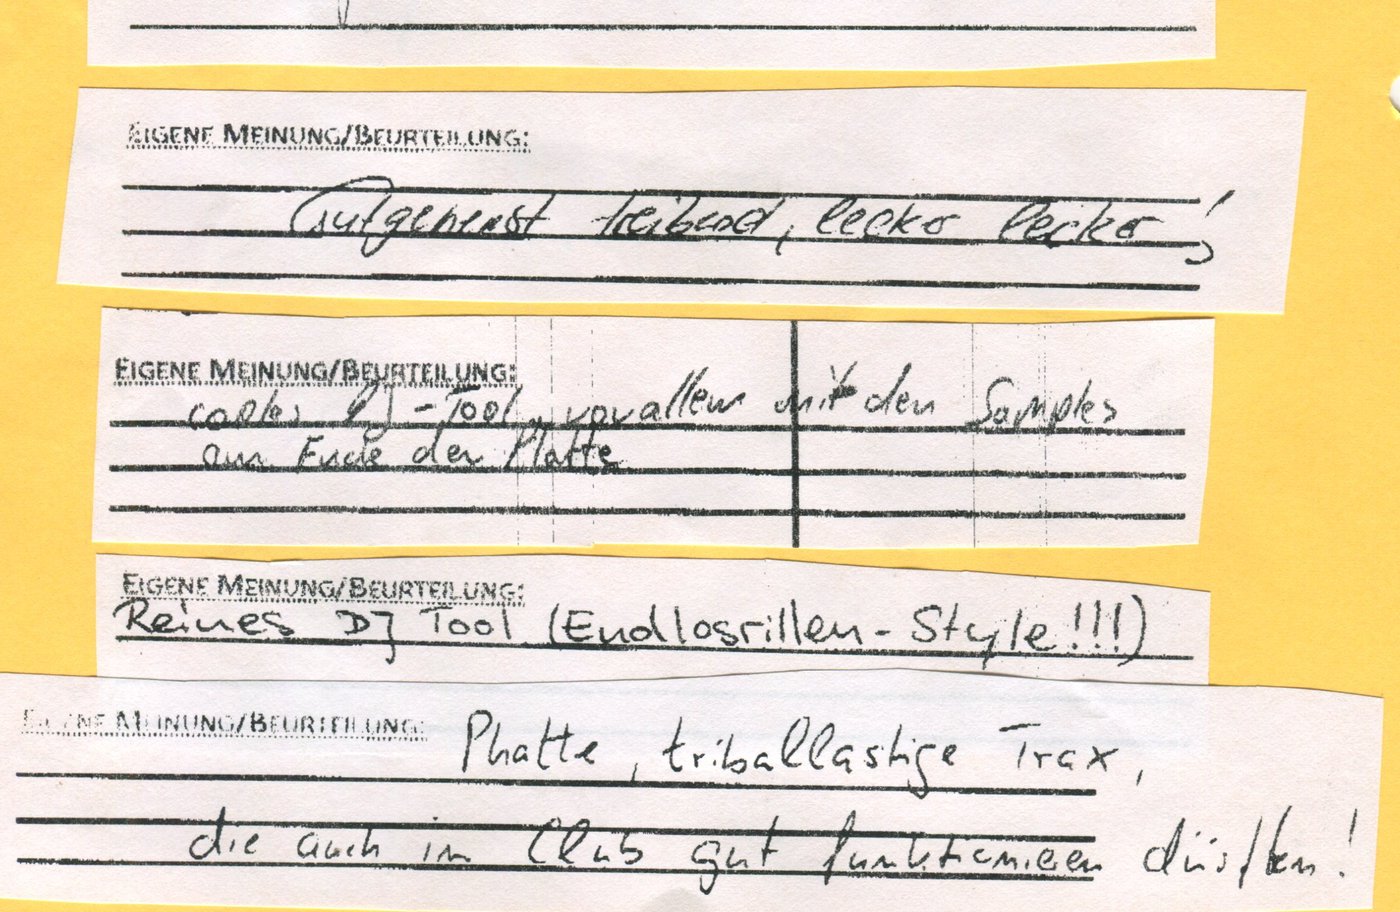 EIGENE MEINUNG/BEURTEILUNG:
Gutgemeinst treibend, lecko lecko!
EIGENE MEINUNG/BEURTEILUNG:
cooles DJ-Tool, vorallem mit den Samples
am Ende der Platte
EIGENE MEINUNG/BEURTEILUNG:
Reines DJ Tool (Endlosrillen-Style!!!)
EIGENE MEINUNG/BEURTEILUNG: Phatte, triballastige Trax,
die auch im Club gut funktionieren dürften!